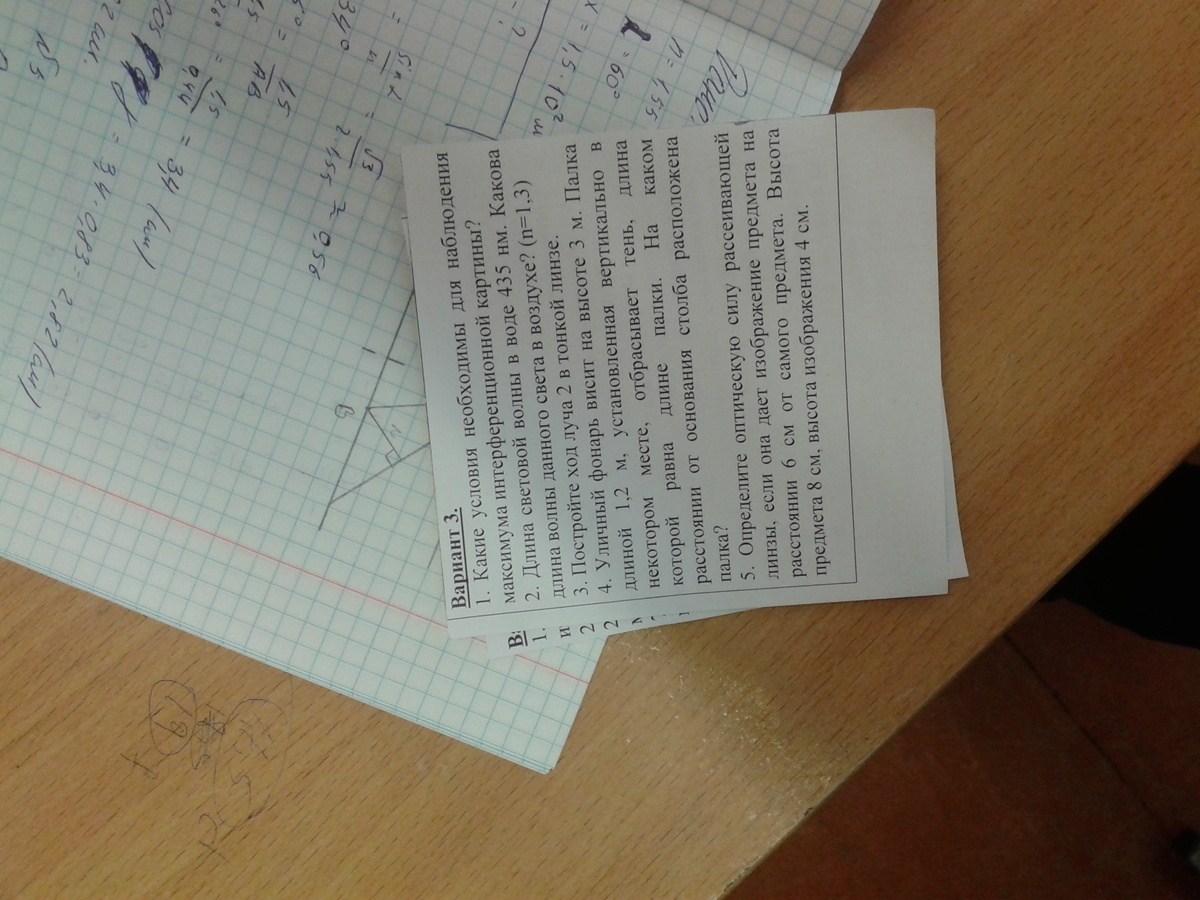 Вариант 3.
1. Какие условия необходимы для наблюдения
максимума интерференционной картины?
2. Длина световой волны в воде 435 нм. Какова
длина волны данного света в воздухе? (n=1,3)
3. Постройте ход луча 2 в тонкой линзе.
4. Уличный фонарь висит на высоте 3 м. Палка
длиной 1,2 м, установленная вертикально в
некотором месте, отбрасывает тень, длина
которой равна длине палки. На каком
расстоянии от основания столба расположена
палка?
5. Определите оптическую силу рассеивающей
линзы, если она дает изображение предмета на
расстоянии 6 см от самого предмета. Высота
предмета 8 см, высота изображения 4 см.
В
1.
и
2
2
n = 1.55
= 60°
x = 1,5 · 10²
- ?
340
= 3,4 (см)
= 3,4 · 0,83 = 2,82 (см)
N5
B